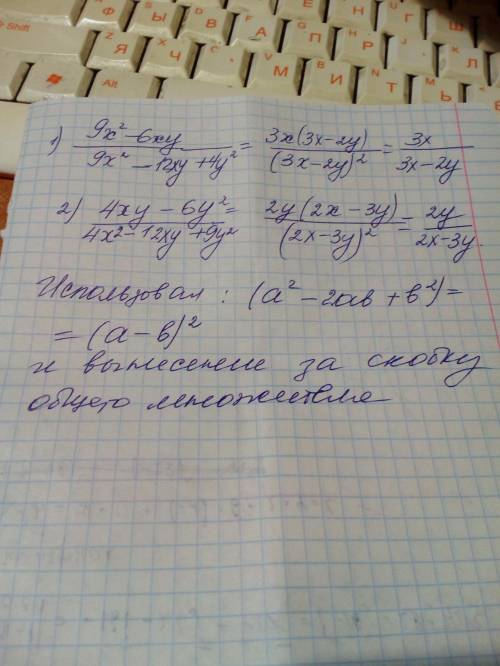 Shift Я Ч С М И Т Ь Б Ю
Alt
1) (9x² - 6xy)/(9x² - 12xy + 4y²) = (3x(3x-2y))/((3x-2y)²) = 3x/(3x-2y)
2) (4xy - 6y²)/(4x² - 12xy + 9y²) = (2y(2x-3y))/((2x-3y)²) = 2y/(2x-3y).
Использовал : (a² - 2ab + b²) =
= (a - b)²
и вынесение за скобку
общего множителя